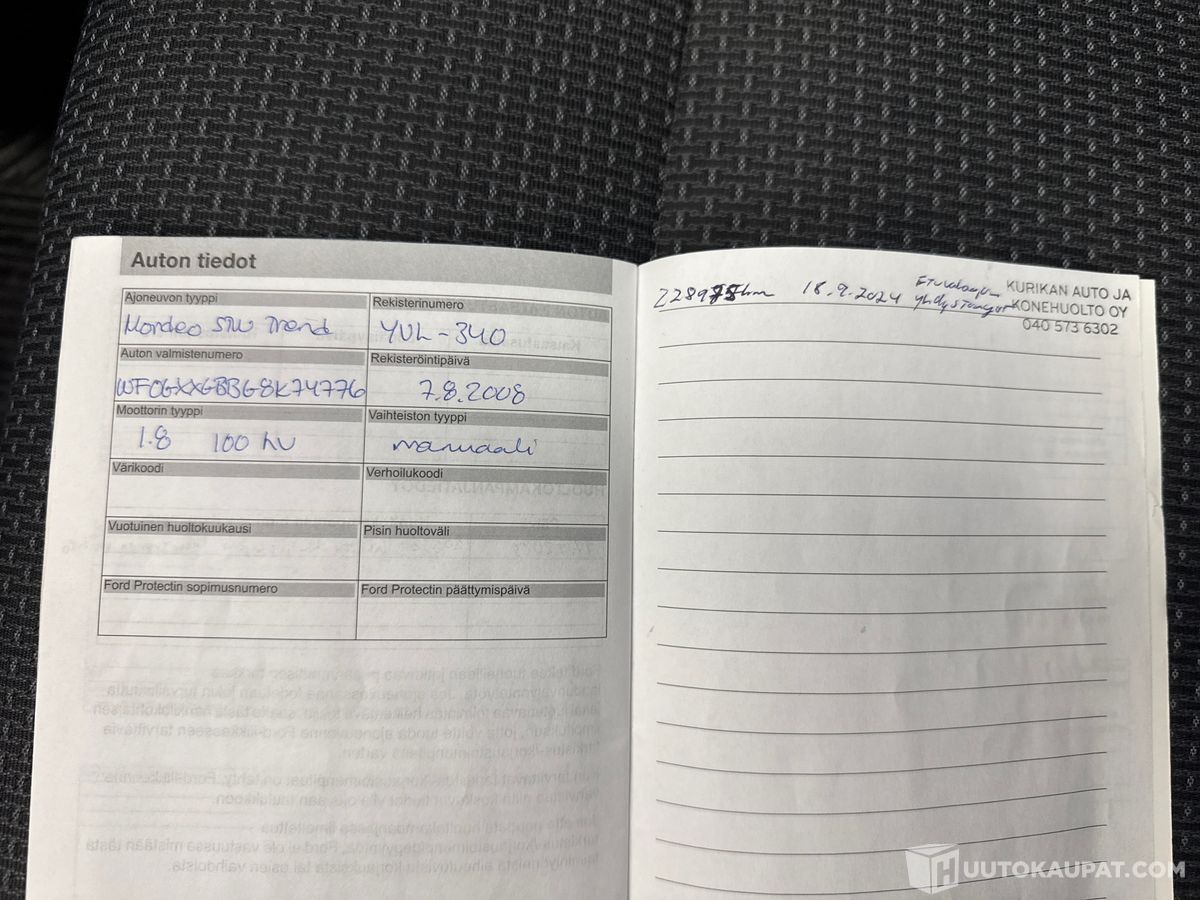 Auton tiedot
Ajoneuvon tyyppi
Mondeo SW Trend
Rekisterinumero
YUL-340
Auton valmistenumero
WF0GXXGBBG8K74776
Rekisteröintipäivä
7.8.2008
Moottorin tyyppi
1.8 100 hv
Vaihteiston tyyppi
manuaali
Värikoodi
Verhoilukoodi
Vuotuinen huoltokuukausi
Pisin huoltoväli
Ford Protectin sopimusnumero
Ford Protectin päättymispäivä
228975km 18.9.2024
yhdystangot
KURIKAN AUTO JA
KONEHUOLTO OY
040 573 6302
HUUTOKAUPAT.COM